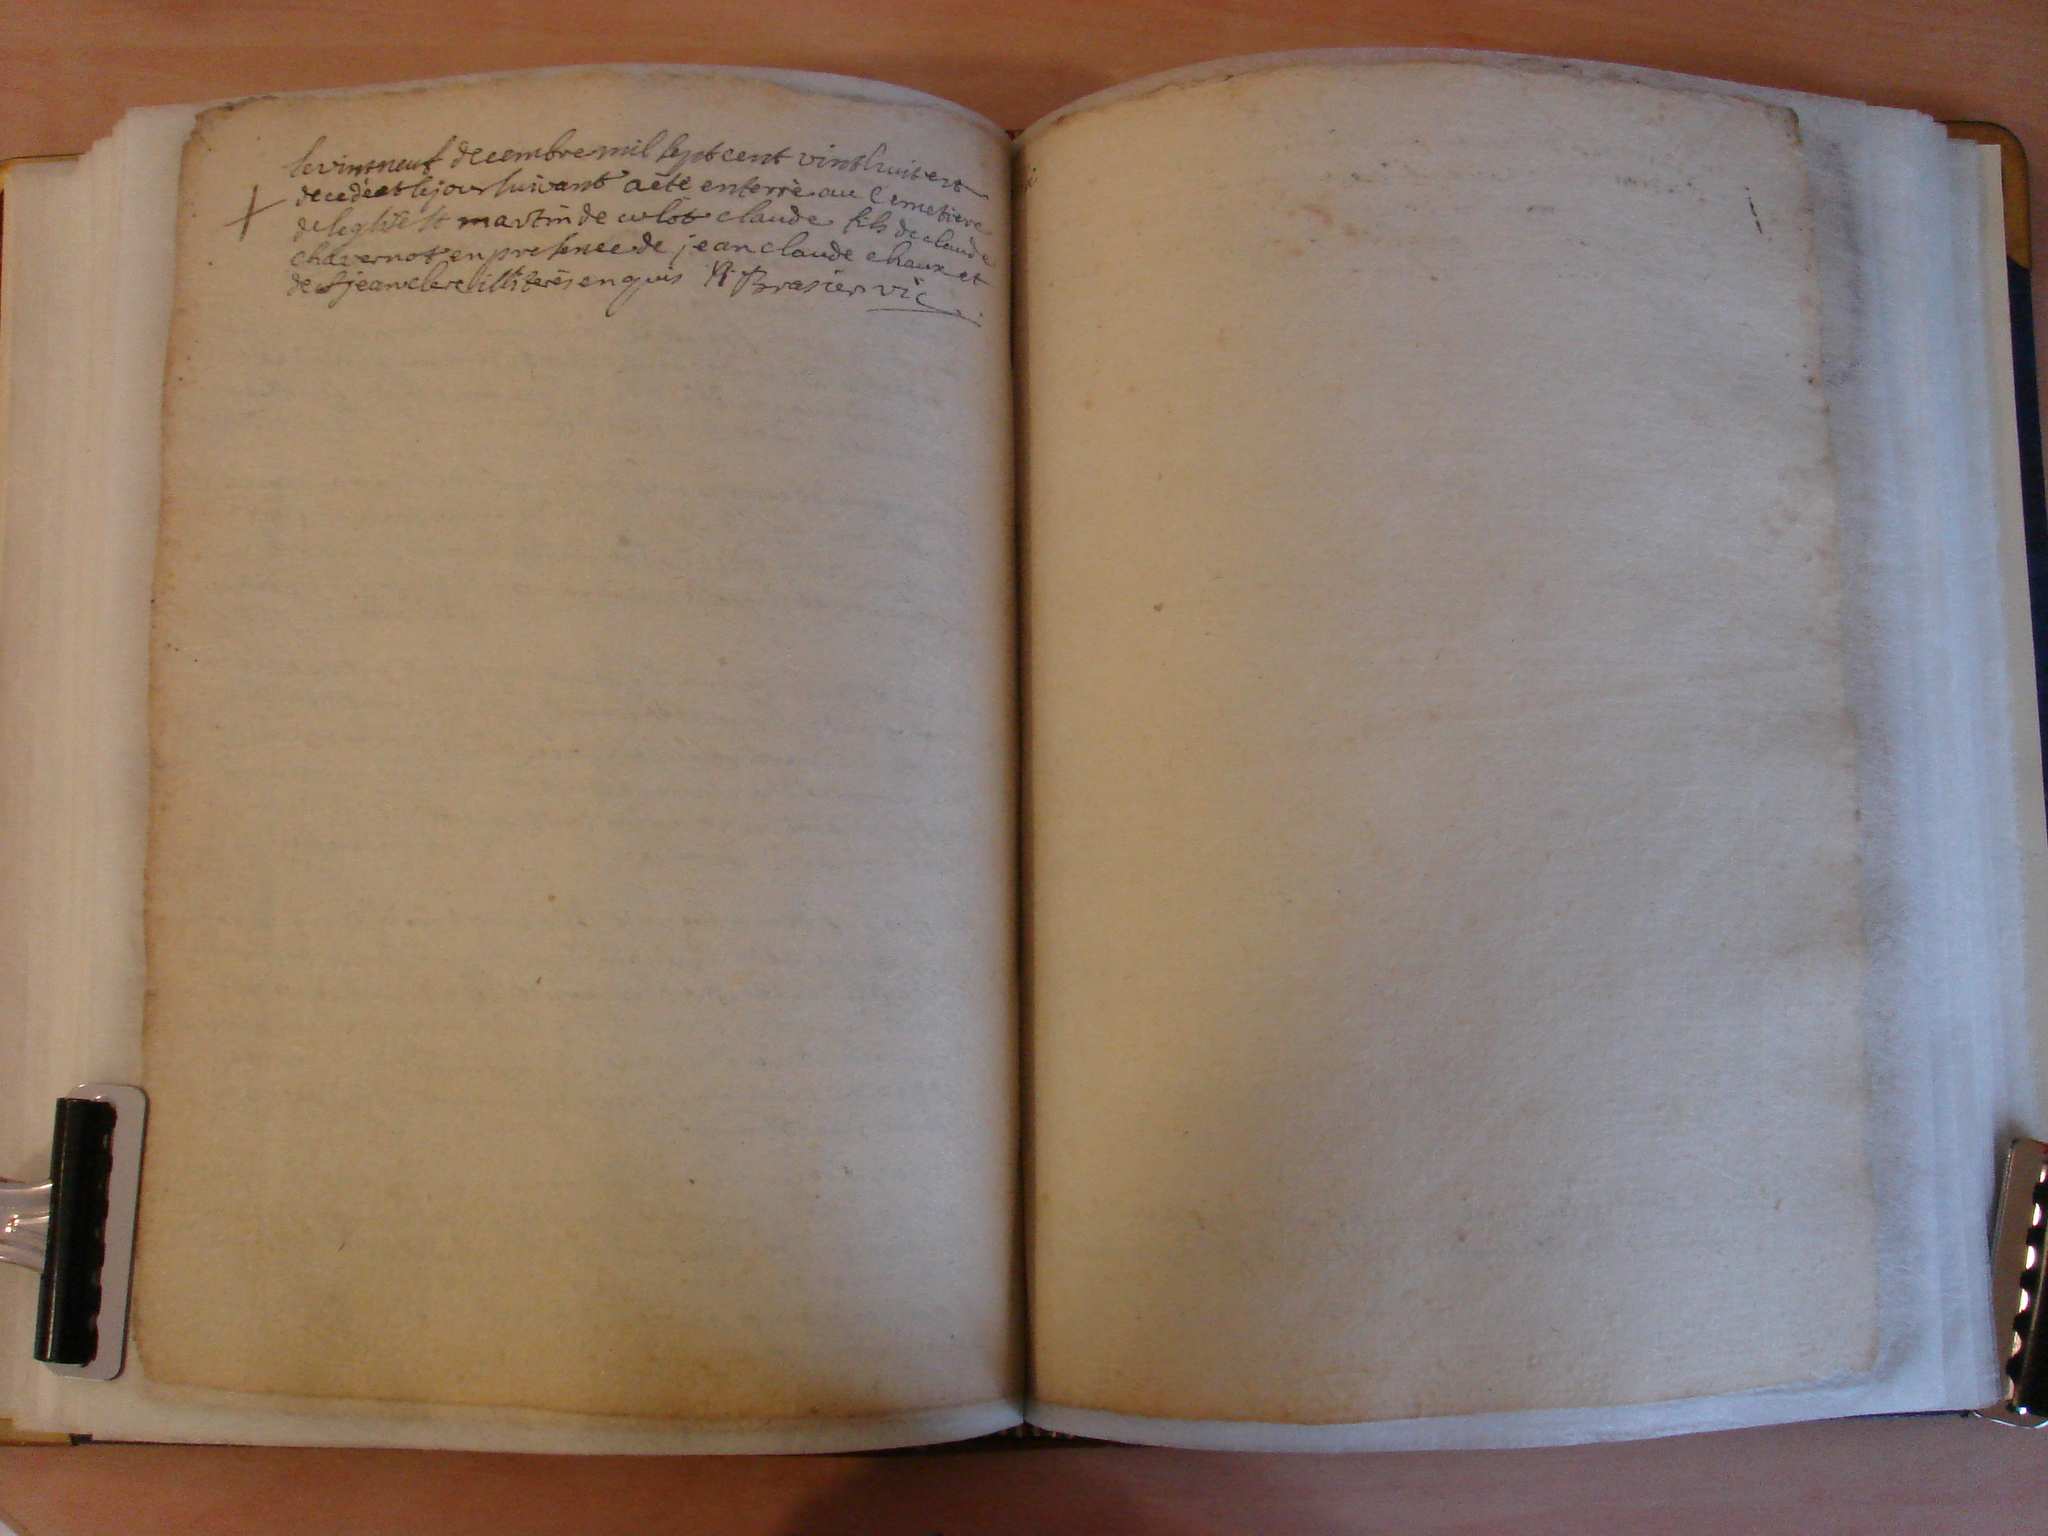 le vintneuf decembre mil sept cent vinthuit est
decedé et le jour suivant a été enterré au Cemetiere
de leglise st martin de culót claude fils de claude
chavernot en presence de jean claude chaux et
de jean clerc illiterés enquis Brasier vic